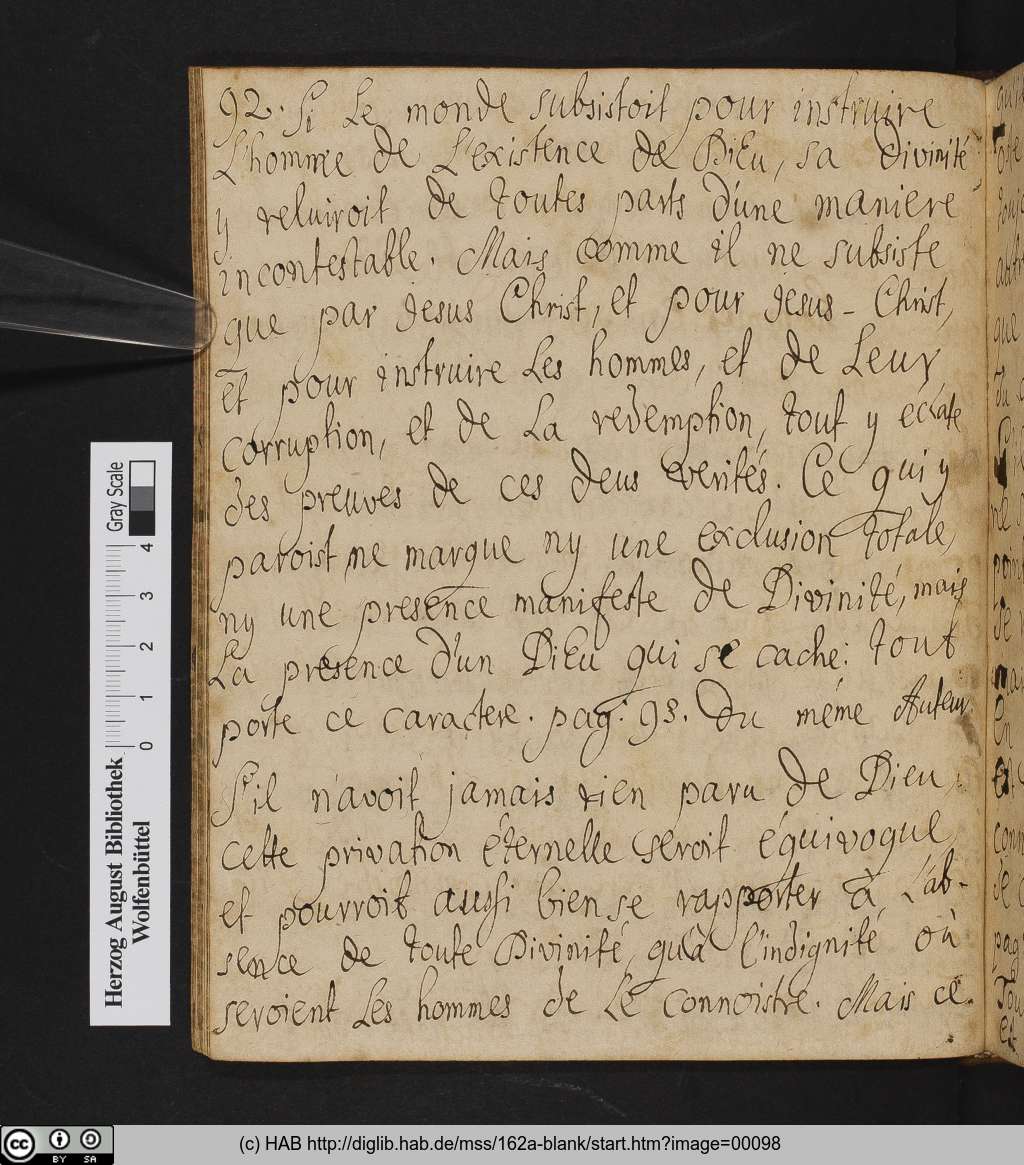 92. Si Le monde subsistoit pour instruire
L'homme de L'existence de Dieu, sa divinité
y reluiroit de toutes parts d'une maniere
incontestable. Mais comme il ne subsiste
que par Jesus Christ, et pour Jesus-Christ,
et pour instruire Les hommes, et de Leur
corruption, et de La redemption, tout y eclate
des preuves de ces deus verités. Ce qui y
paroist ne marque ny une exclusion totale,
ny une presence manifeste de Divinité, mais
La presence d'un Dieu qui se cache: tout
porte ce caractere. pag: 93. Du méme Auteur
S'il n'avoit jamais rien paru de Dieu,
cette privation éternelle seroit équivoque,
et pourroit aussi bien se rapporter à L'ab-
sence de toute Divinité, qu'à l'indignité où
seroient Les hommes de Le connoistre. Mais ce.
Herzog August Bibliothek
Wolfenbüttel
0 1 2 3 4
Gray Scale
cc BY SA
(c) HAB http://diglib.hab.de/mss/162a-blank/start.htm?image=00098